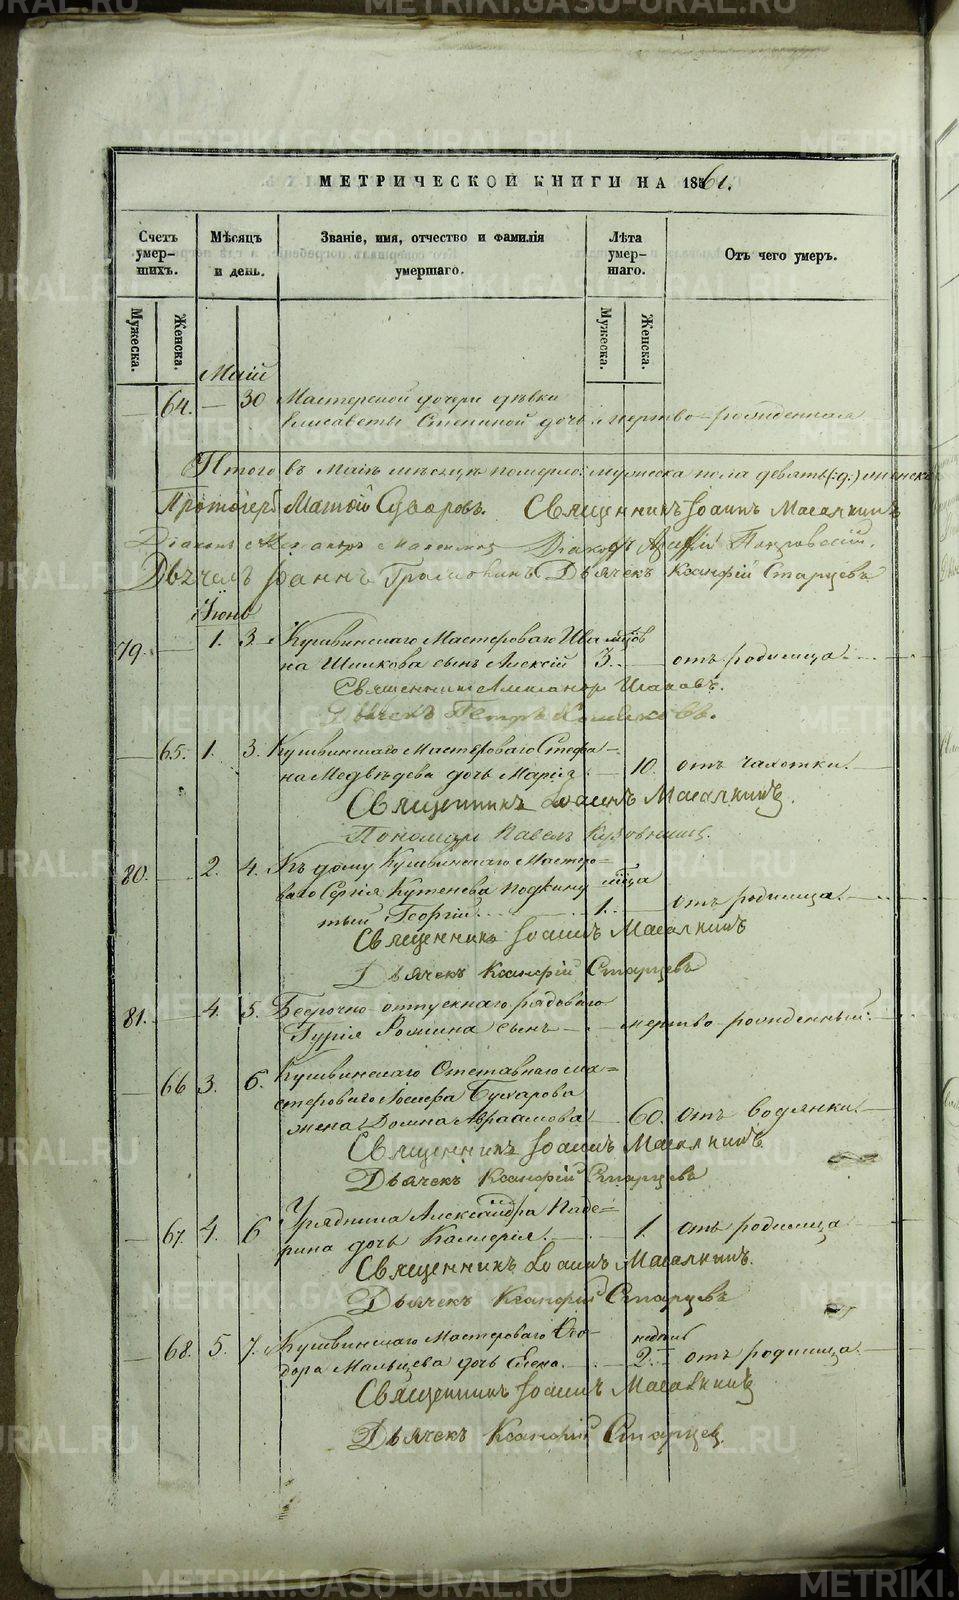 METRIKI.GASO-URAL.RU
МЕТРИЧЕСКОЙ КНИГИ НА 1861.
Счетъ умер- шихъ.
Мѣсяцъ и день.
Званіе, имя, отчество и фамилія умершаго.
Лѣта умер- шаго.
Отъ чего умеръ.
Мужеска.
Женска.
Мужеска.
Женска.
Маій
64. — 30 Мастерской дочери дѣвки
Елисаветы Степиной дочь мертво-рожденная
Итого въ Маіѣ мѣсяцѣ померло: мужеска пола девять (:9:) женска
Протоіерей Матѳій Суворовъ. Священникъ Іоаннъ Масалкинъ
Діаконъ Діаконъ Покровскій.
Дьячекъ Іоаннъ Дьячекъ Ксанфій Старцевъ
Іюнь
79. 1. 3. Кушвинскаго Мастероваго Ива-
на Шишкова сынъ Алексій 3. отъ родимца.
Священникъ Александръ
Дьячекъ Петръ
65. 1. 3. Кушвинскаго Мастероваго Стефа-
на Медвѣдева дочь Марія 10. отъ чахотки.
Священникъ Іоаннъ Масалкинъ.
Пономарь Павелъ
80. 2. 4. Къ дому Кушвинскаго Мастеро-
ваго Сергія Кутенева подкину
тый Георгій 1. отъ родимца.
Священникъ Іоаннъ Масалкинъ
Дьячекъ Ксанфій Старцевъ
81. 4. 5. Безсрочно отпускнаго рядоваго
Гурія сынъ мертво-рожденный.
66 3. 6. Кушвинскаго Отставнаго ма-
стероваго Бухарова
жена Домна Авраамова 60. отъ водянки.
Священникъ Іоаннъ Масалкинъ
Дьячекъ Ксанфій Старцевъ
67. 4. 6 Урядника Александра Паде-
рина дочь Калерія. 1. отъ родимца
Священникъ Іоаннъ Масалкинъ.
Дьячекъ Ксанфій Старцевъ
68. 5. 7. Кушвинскаго Мастероваго Ѳео- недѣль
дора Мальцева дочь Елена. 2. отъ родимца.
Священникъ Іоаннъ Масалкинъ
Дьячекъ Ксанфій Старцевъ
METRIKI.GASO-URAL.RU